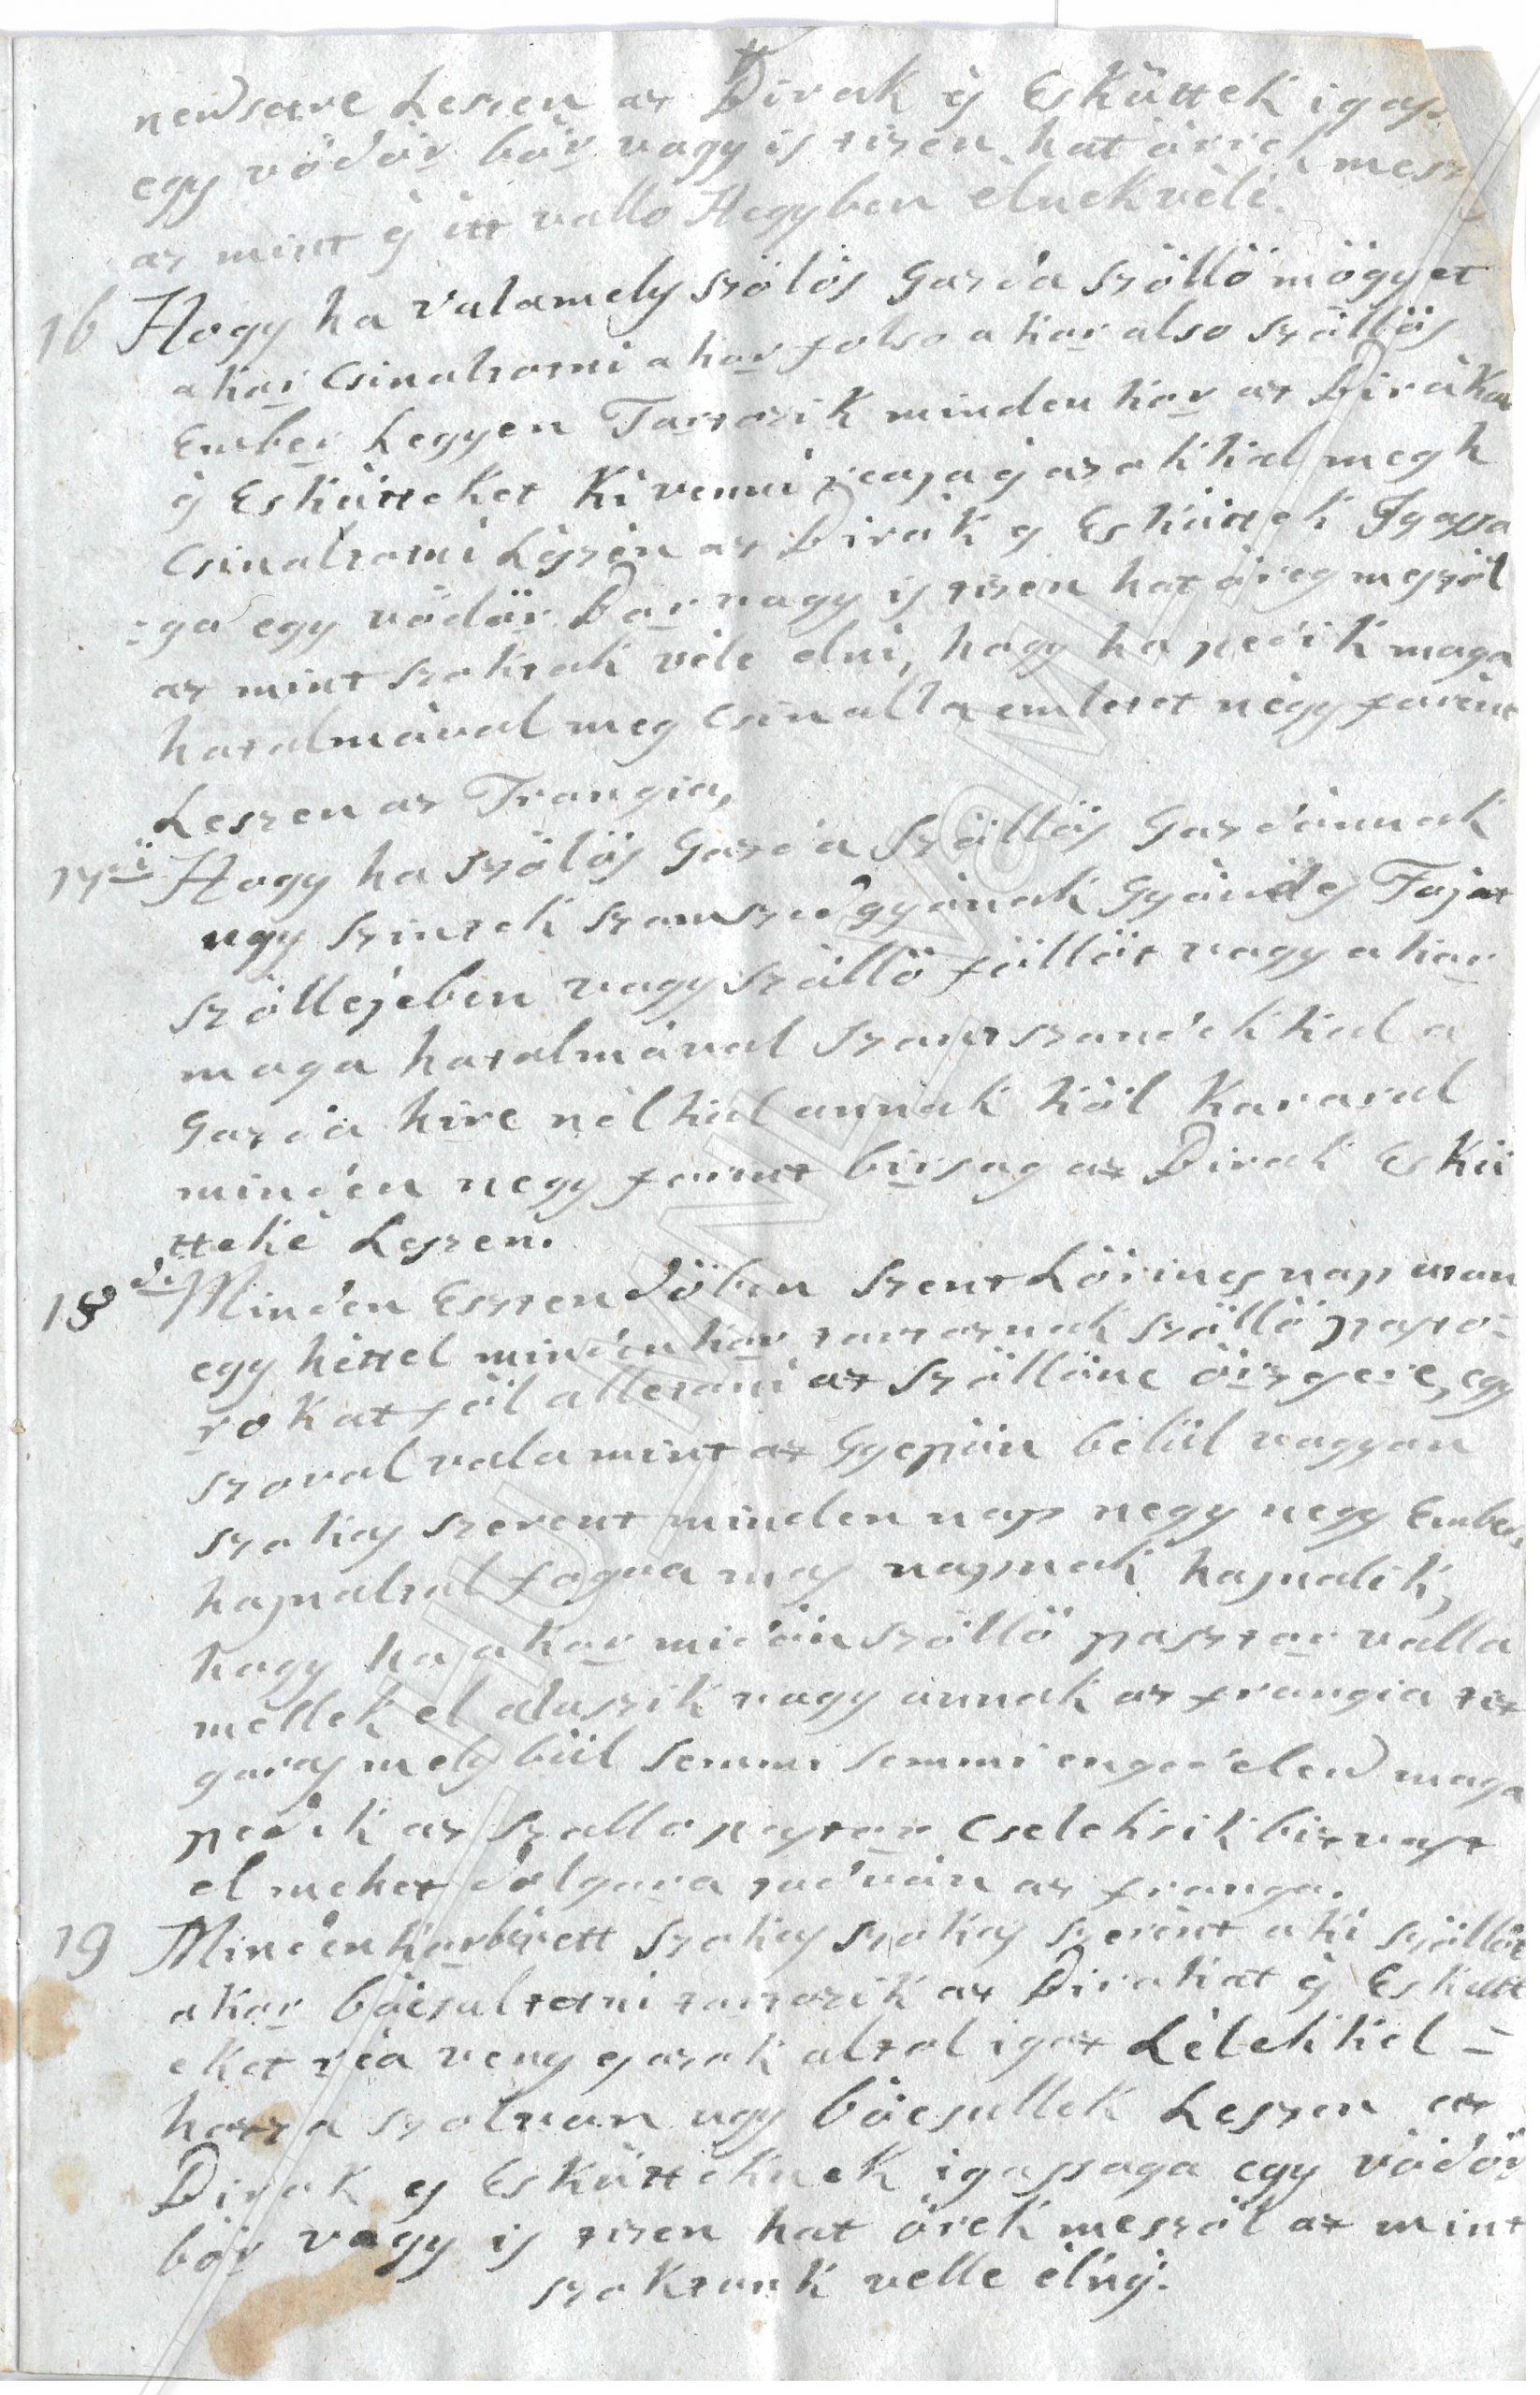 nendserre Leszen az Birak ès Eskûttek igas
egy vödör bòr vagy is tizen hat öreg mesz
az mint ès itt vallo Hegyben elnek vèli.
16 Hogy ha valamely szölös Gazda szöllö mögyet
akar Csinaltatni akar folso akar also szöllös
Ember Legyen Tartozik minden kor az Birákat
ès Eskütteket Ki venni reaja ès azokkal megh
Csinaltatni Lészen az Birák es Eskütteh Igassa
=ga egy vödör Bor vagy is tizen hat öreg meszöl
az mint szoktak vèle elni, hogy ha pedik maga
hatalmával meg csinallia emberet nègy forint
Leszen az Frangia,
17dik Hogy ha szölös Gazda Szöllös Gazdánnak
ugy szintek szomszèdgyának Gyönïdes Fajat
szöllejeben vagy szöllö föllöt vagy akar
maga hatalmával szantszandekkal a
Gazda hire nèlkul annak köl Karaval
minden negy forint birsag az Birak Eskü
ttekè Leszen.
18di Minden Eszten döben Szent Lörincz nap utan
egy hèttel minden kor tartoznak szöllö paszto=
rokat föl alletani az Szöllönc örizzere, egy
szoval vala mint az Gyepün belül vagyon
szokas szerent minden nap negy negy Ember,
hajnaltul fogva mas napnak hajnalik,
hogy ha akar midön szöllö pasztor valla
mellek el aluszik vagy annak az frangia tiz
garas mely bül semmi semmi engedelem maga
pedik az Szollo pasztor Cselekszik bizvast
el mehet dolgara tudván az franga.
19 Minden kor bèvett szokas szokas szerint aki szöllöt
akar böcsultetni tartozik az Birakat ès Eskutt
eket rèa venny es azok altal igaz Lèlekkel =
hozza szolvan ugy böcsullek Leszen az
Birak es EsküttekneK igassaga egy vödör
bòr vagy is tizen hat örek meszöl az mint
szoktunk velle èlny.
HU MNL VGML